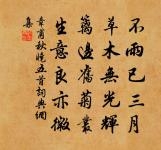 不雨已三月
草木無光輝
籬邊舊菊叢
生意良亦微
章甫秋晚五首詞典網
集